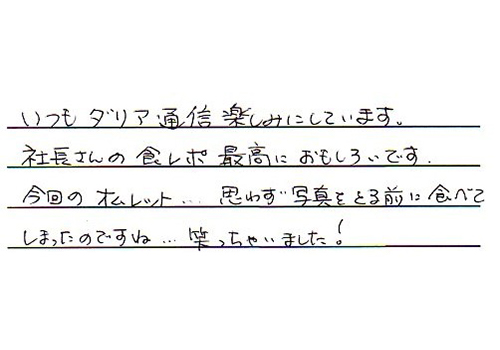 いつもダリア通信楽しみにしています。
社長さんの食レポ最高におもしろいです.
今回のオムレット… 思わず写真をとる前に食べて
しまったのですね… 笑っちゃいました！